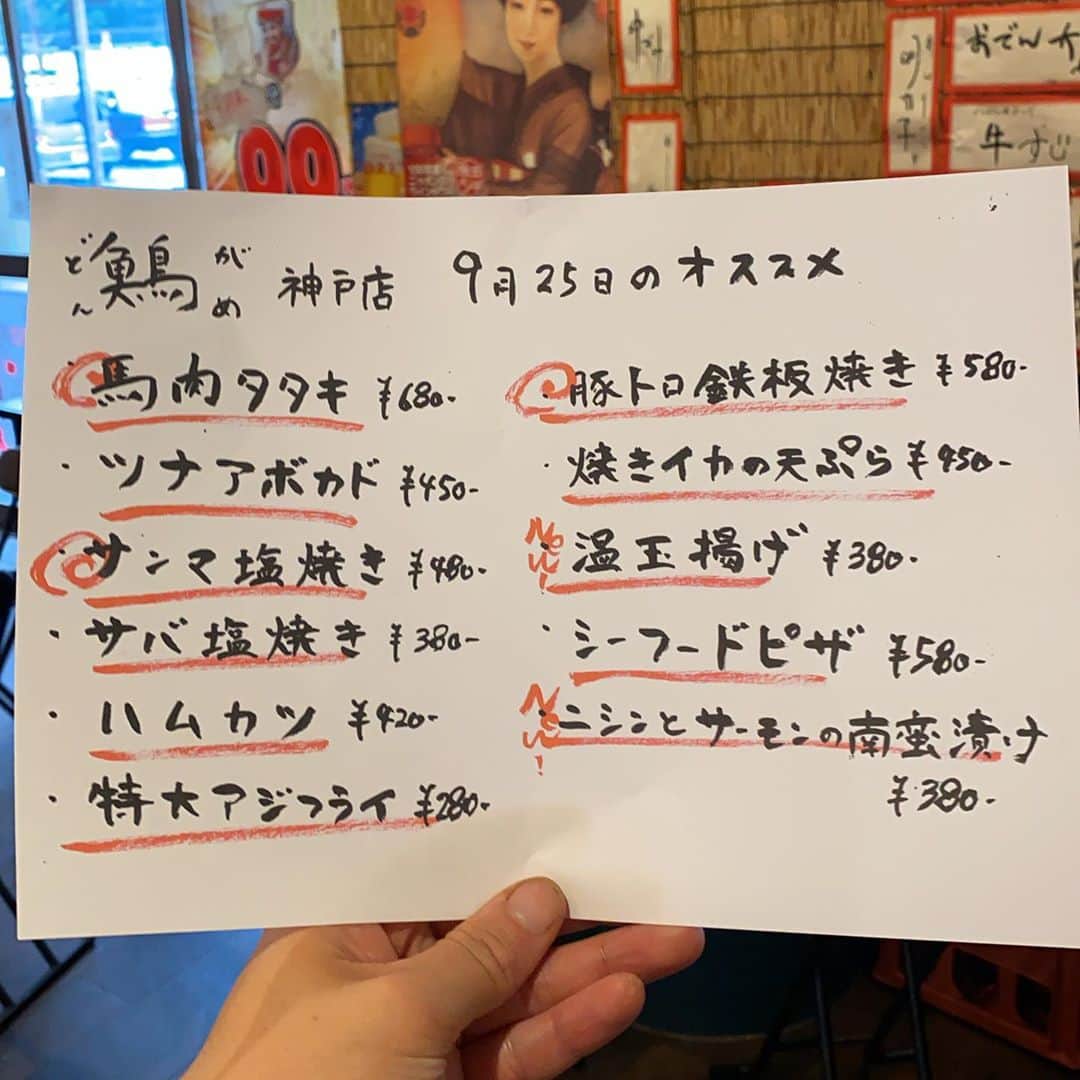 どん 魚鳥 がめ 神戸店 9月25日のオススメ
・馬肉タタキ ¥680-
・ツナアボカド ¥450-
・サンマ塩焼き ¥480-
・サバ塩焼き ¥380-
・ハムカツ ¥420-
・特大アジフライ ¥280-
・豚トロ鉄板焼き ¥580-
・焼きイカの天ぷら ¥450-
New! ・温玉揚げ ¥380-
・シーフードピザ ¥580-
New! ・ニシンとサーモンの南蛮漬け
¥380-
おでん
牛すじ
99